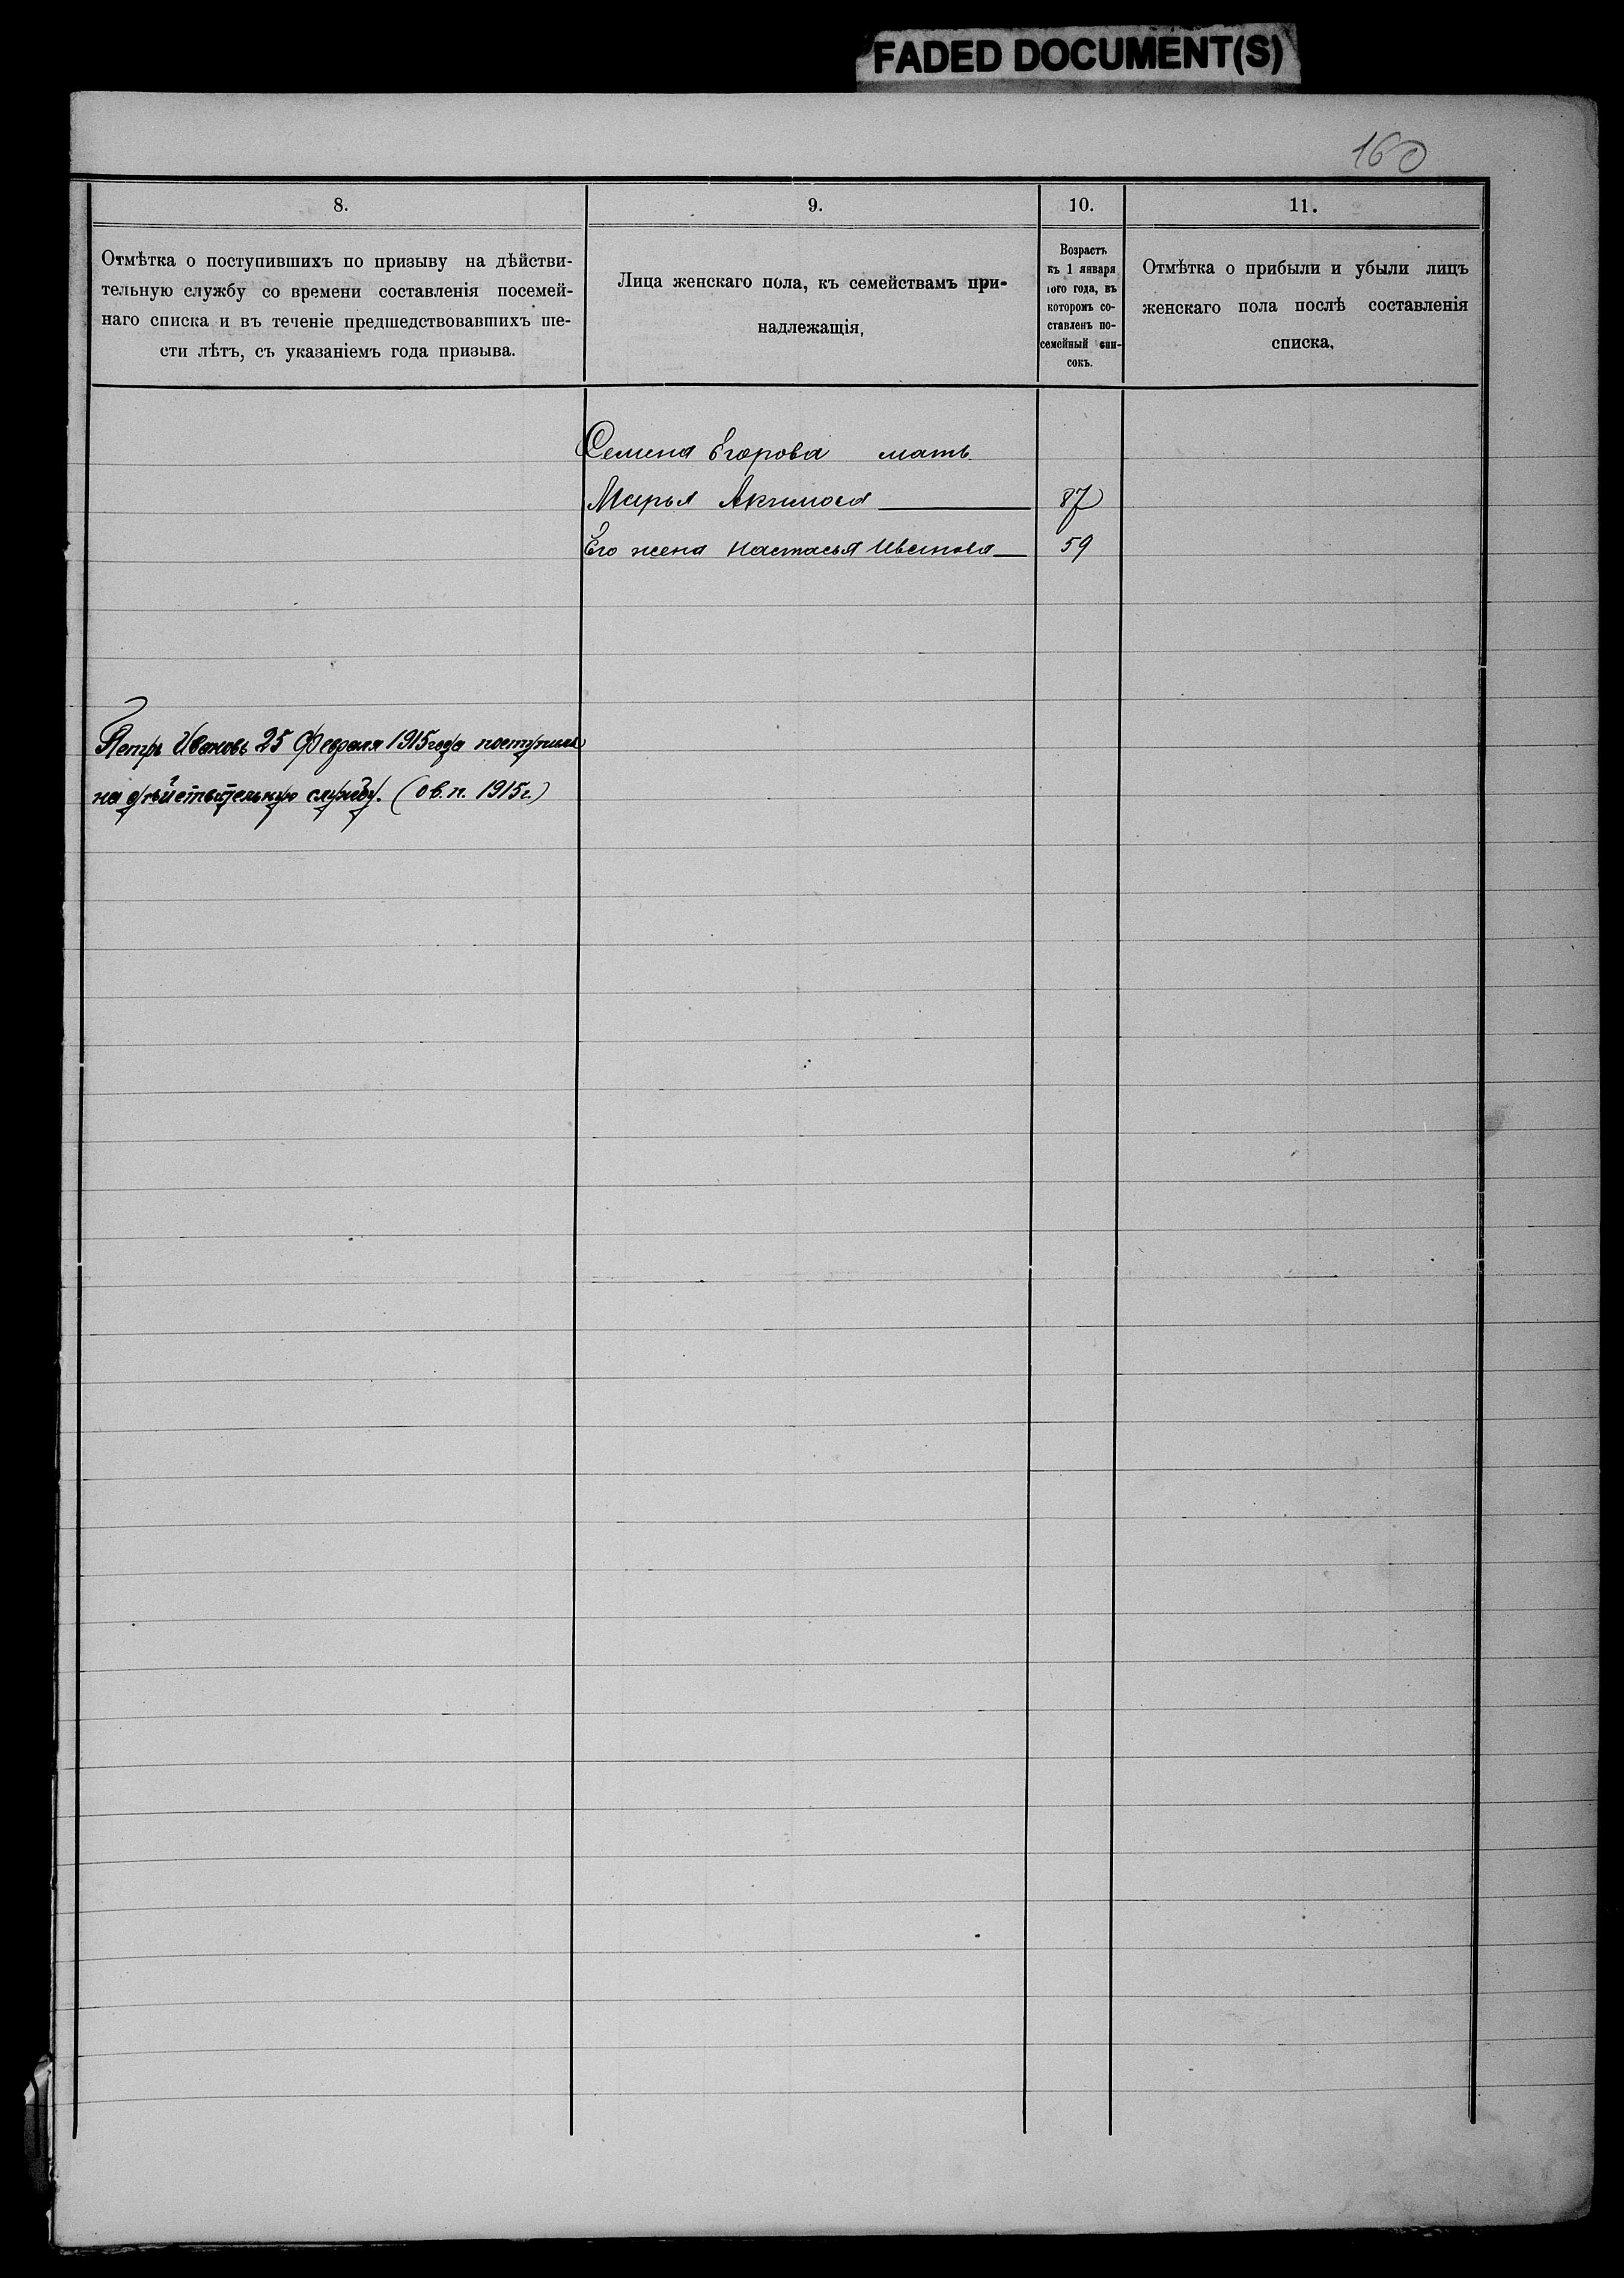 FADED DOCUMENT(S)
160
8.
Отмѣтка о поступившихъ по призыву на дѣйстви-
тельную службу со времени составленія посемей-
наго списка и въ теченіе предшедствовавшихъ ше-
сти лѣтъ, съ указаніемъ года призыва.
9.
Лица женскаго пола, къ семействамъ при-
надлежащія,
10.
Возрастъ
къ 1 января
того года, въ
которомъ со-
ставленъ по-
семейный спи-
сокъ.
11.
Отмѣтка о прибыли и убыли лицъ
женскаго пола послѣ составленія
списка.
Семена Егорова мать
Марья Акимова 87
Его жена Настасья Иванова 59
Петръ Ивановъ 25 Февраля 1915 года поступилъ
на дѣйствительную службу. (о в. п. 1915 г.)